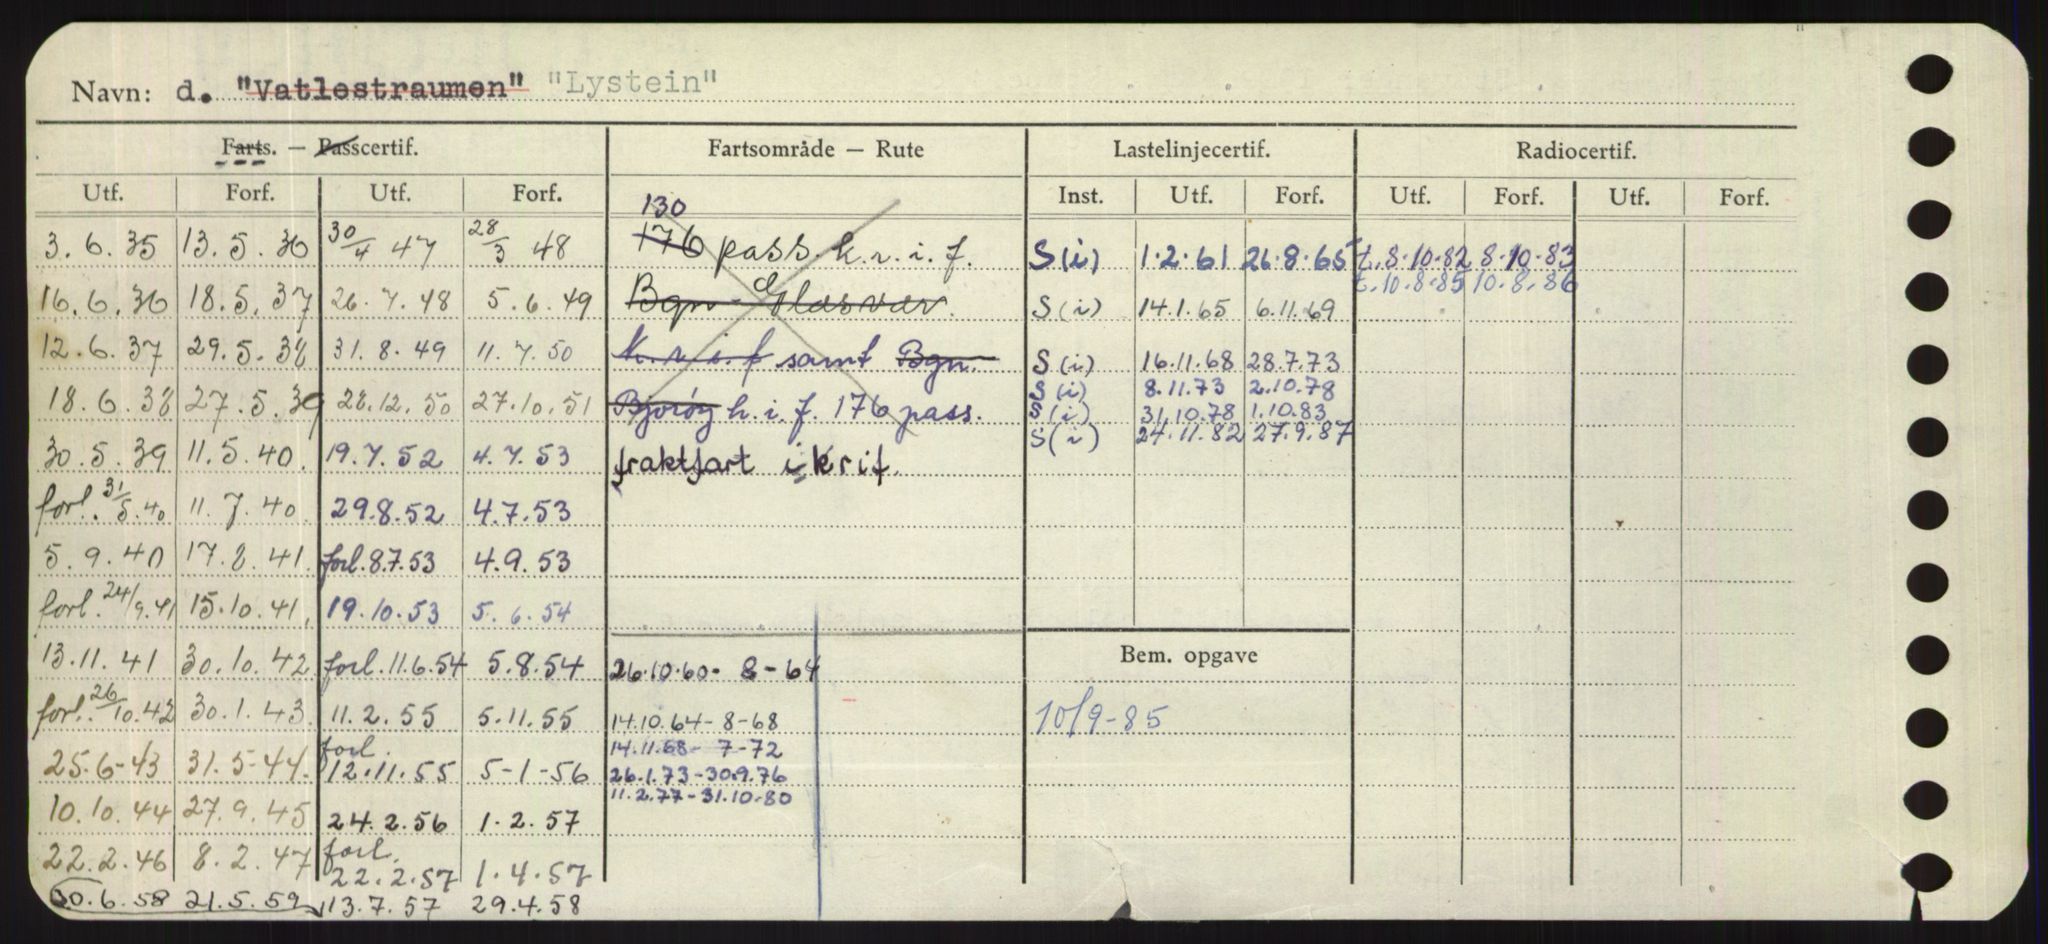 Navn: d. "Vatlestraumen" "Lystein"
Farts. — Passcertif. Fartsområde — Rute Lastelinjecertif. Radiocertif.
Utf. Forf. Utf. Forf. Inst. Utf. Forf. Utf. Forf. Utf. Forf.
130
3.6.35 13.5.36 30/4 47 28/3 48 176 pass. k.r.i.f. S(i) 1.2.61 26.8.65 t.8.10.82 8.10.83
t.10.8.85 10.8.86
16.6.36 18.5.37 26.7.48 5.6.49 Bgn - Glesvær. S(i) 14.1.65 6.11.69
12.6.37 29.5.38 31.8.49 11.7.50 k.r.i.f samt Bgn. S(i) 16.11.68 28.7.73
S(i) 8.11.73 2.10.78
18.6.38 27.5.39 28.12.50 27.10.51 Bjorøy h.i.f. 176 pass. S(i) 31.10.78 1.10.83
S(i) 24.11.82 27.9.87
30.5.39 11.5.40. 19.7.52 4.7.53 fraktfart i krif.
forl. 31/5.40 11.7.40. 29.8.52 4.7.53
5.9.40 17.8.41. forl.8.7.53 4.9.53
forl. 24/9.41 15.10.41, 19.10.53 5.6.54
13.11.41 30.10.42 forl.11.6.54 5.8.54 26.10.60- 8-64 Bem. opgave
forl. 26/10.42 30.1.43. 11.2.55 5.11.55 14.10.64-8-68 10/9-85
forl. 14.11.68- 7-72
25.6-43 31.5-44. 12.11.55 5-1-56 26.1.73-30.9.76
11.2.77-31.10.80
10.10.44 27.9.45 24.2.56 1.2.57
forl.
22.2.46 8.2.47 22.2.57 1.4.57
30.6.58 21.5.59 13.7.57 29.4.58